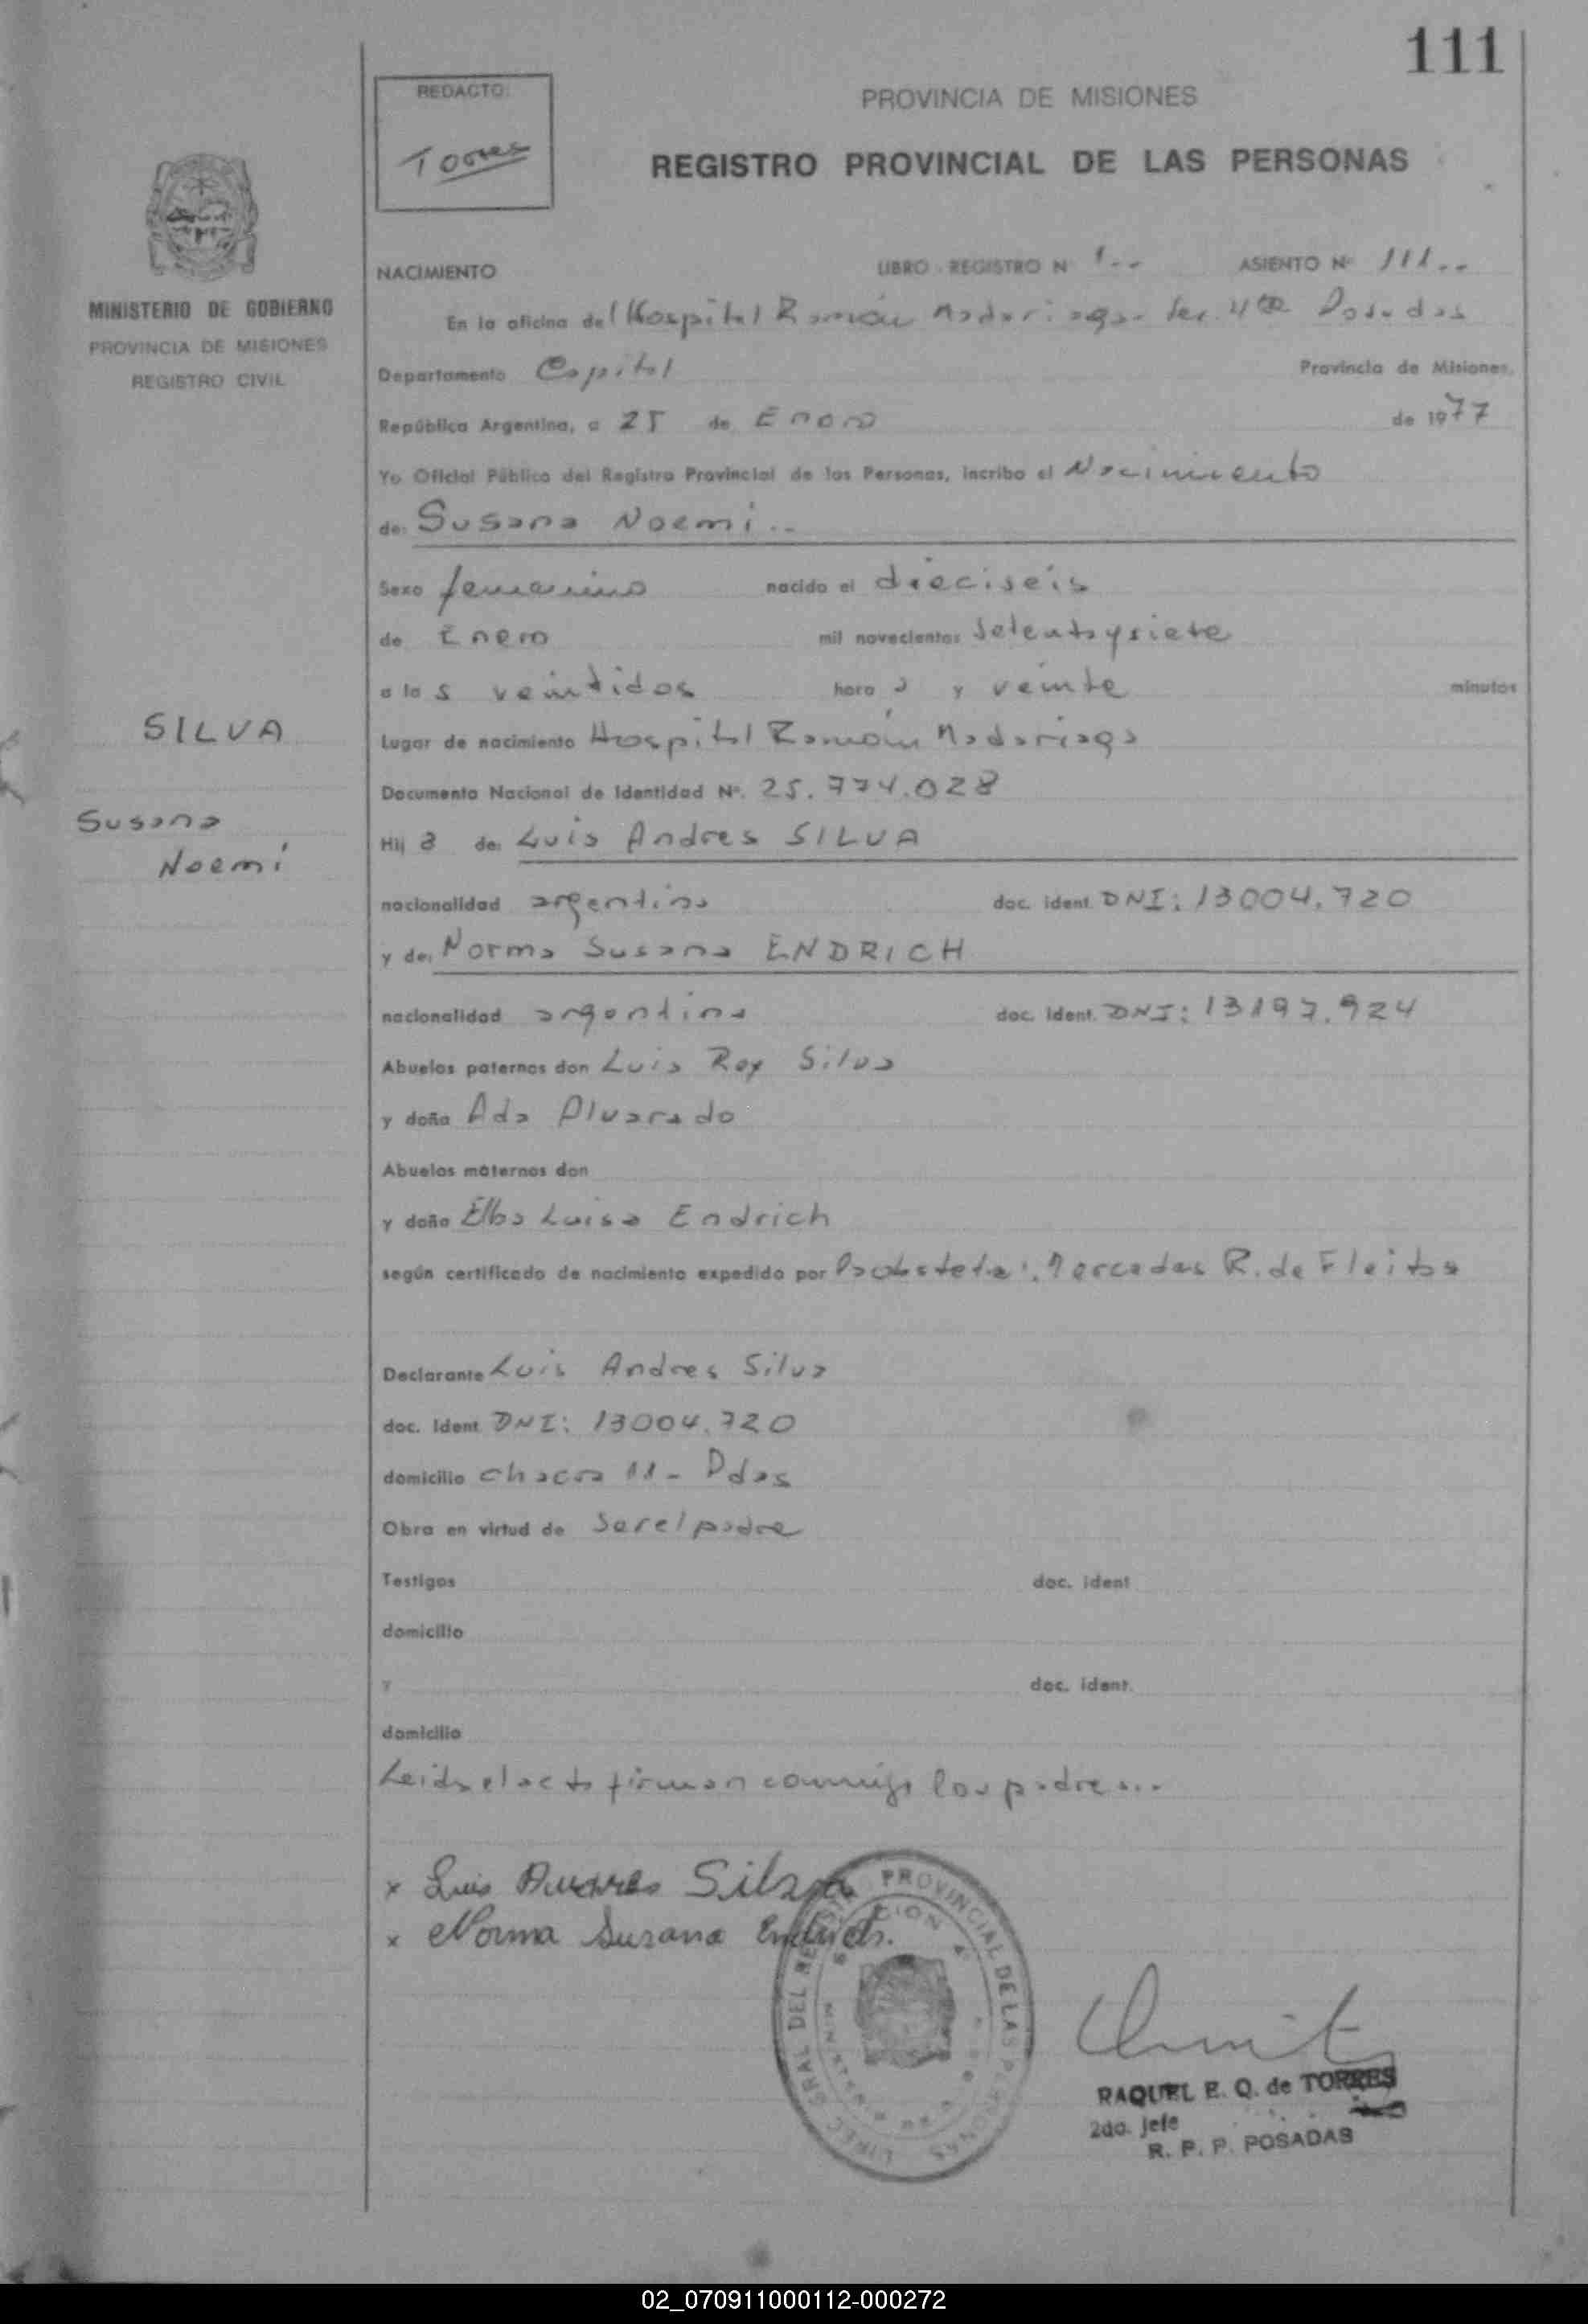 111
REDACTO:
Torres
PROVINCIA DE MISIONES
REGISTRO PROVINCIAL DE LAS PERSONAS
MINISTERIO DE GOBIERNO
PROVINCIA DE MISIONES
REGISTRO CIVIL
NACIMIENTO LIBRO REGISTRO Nº 1.- ASIENTO Nº 111.-
En la oficina del Hospital Ramón Madariaga Posadas
Departamento Capital Provincia de Misiones.
República Argentina, a 25 de Enero de 1977
Yo Oficial Público del Registro Provincial de las Personas, incribo el Nacimiento
de: Susana Noemi.-
Sexo femenino nacido el dieciseis
de Enero mil novecientos setentaysiete
a las veintidos horas y veinte minutos
SILVA
Susana
Noemi
Lugar de nacimiento Hospital Ramón Madariaga
Documento Nacional de Identidad Nº. 25.774.028
Hija de: Luis Andres SILVA
nacionalidad argentina doc. ident. DNI: 13004.720
y de: Norma Susana ENDRICH
nacionalidad argentina doc. ident. DNI: 13197.924
Abuelos paternos don Luis Rey Silva
y doña Ada Alvarado
Abuelos maternos don
y doña Elba Luisa Endrich
según certificado de nacimiento expedido por Mercedes R. de Fleitas
Declarante Luis Andres Silva
doc. Ident. DNI: 13004.720
domicilio chacra 11- Pdas
Obra en virtud de ser el padre
Testigos doc. ident
domicilio
y doc. ident.
domicilio
Leida el acta firman conmigo los padres.-
x Luis Andres Silva
x Norma Susana Endrich.
PROVINCIAL DE LAS PERSONAS
GRAL DEL
RAQUEL E. Q. de TORRES
2do. Jefe
R. P. P. POSADAS
02_070911000112-000272